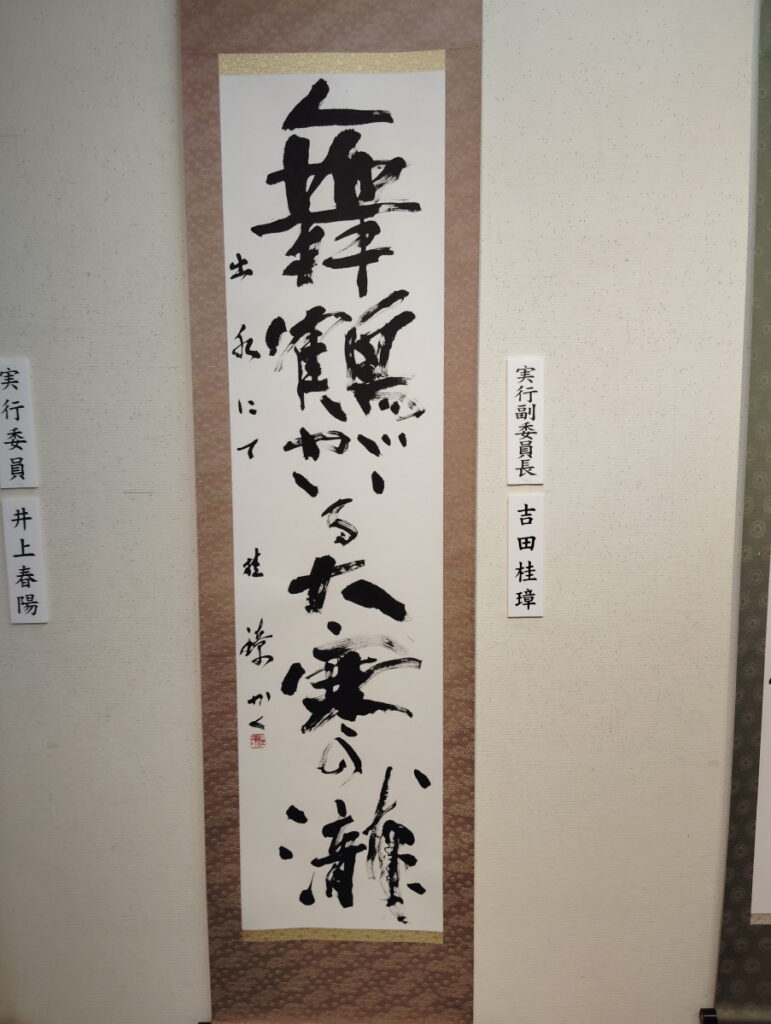 舞鶴がいる大寒の瀧
出水にて 桂璋かく
実行副委員長
吉田桂璋
実行委員
井上春陽